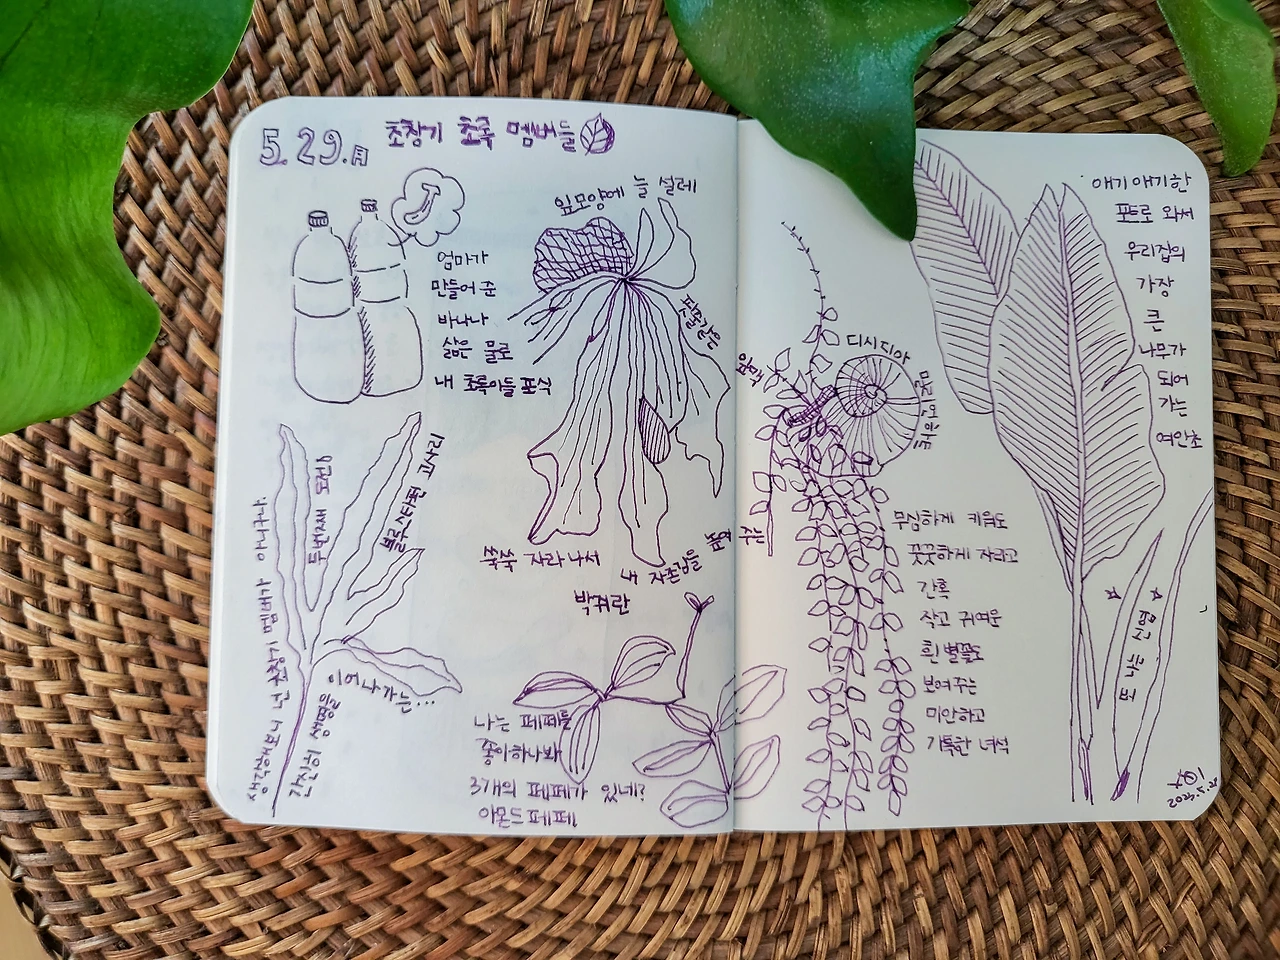 5.29.月 초창기 초록 멤버들
엄마가
만들어 준
바나나
삶은 물로
내 초록이들 포식
잎모양에 늘 설레
쑥쑥 자라나서 내 자존감을
높여 주는
박쥐란
생각해보니 넌 초창기 멤버가 아니구나.
두번째 도전!
블루스타펀 고사리
간신히 생명을
이어나가는...
나는 페페를
좋아하나봐
3개의 페페가 있네?
아몬드페페
디시디아
무심하게 키워도
꿋꿋하게 자라고
간혹
작고 귀여운
흰 별꽃도
보여주는
미안하고
기특한 녀석
애기애기한
포트로 와서
우리집의
가장
큰
나무가
되어
가는
여인초
2023.5.29